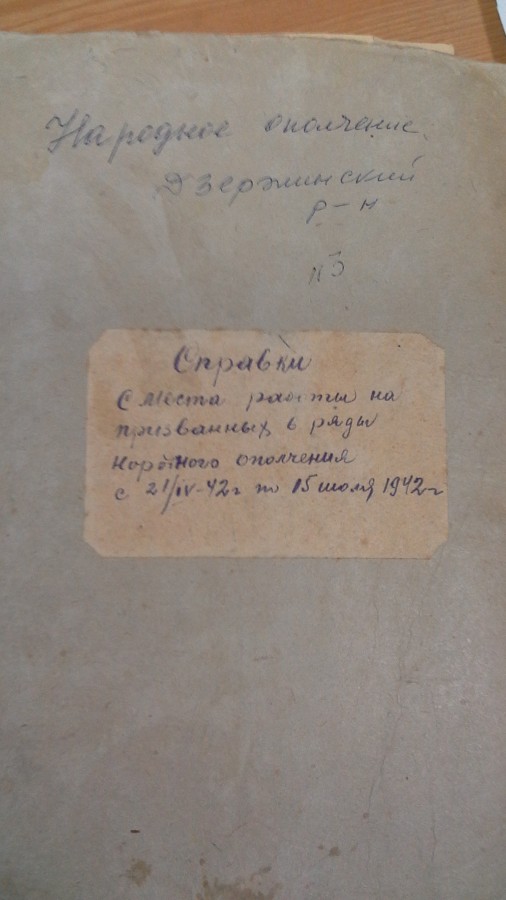 Народное ополчение.
Дзержинский
р-н
п 3
Справки
с места работы на
призванных в ряды
народного ополчения
с 21/IV-42г по 15 июля 1942г